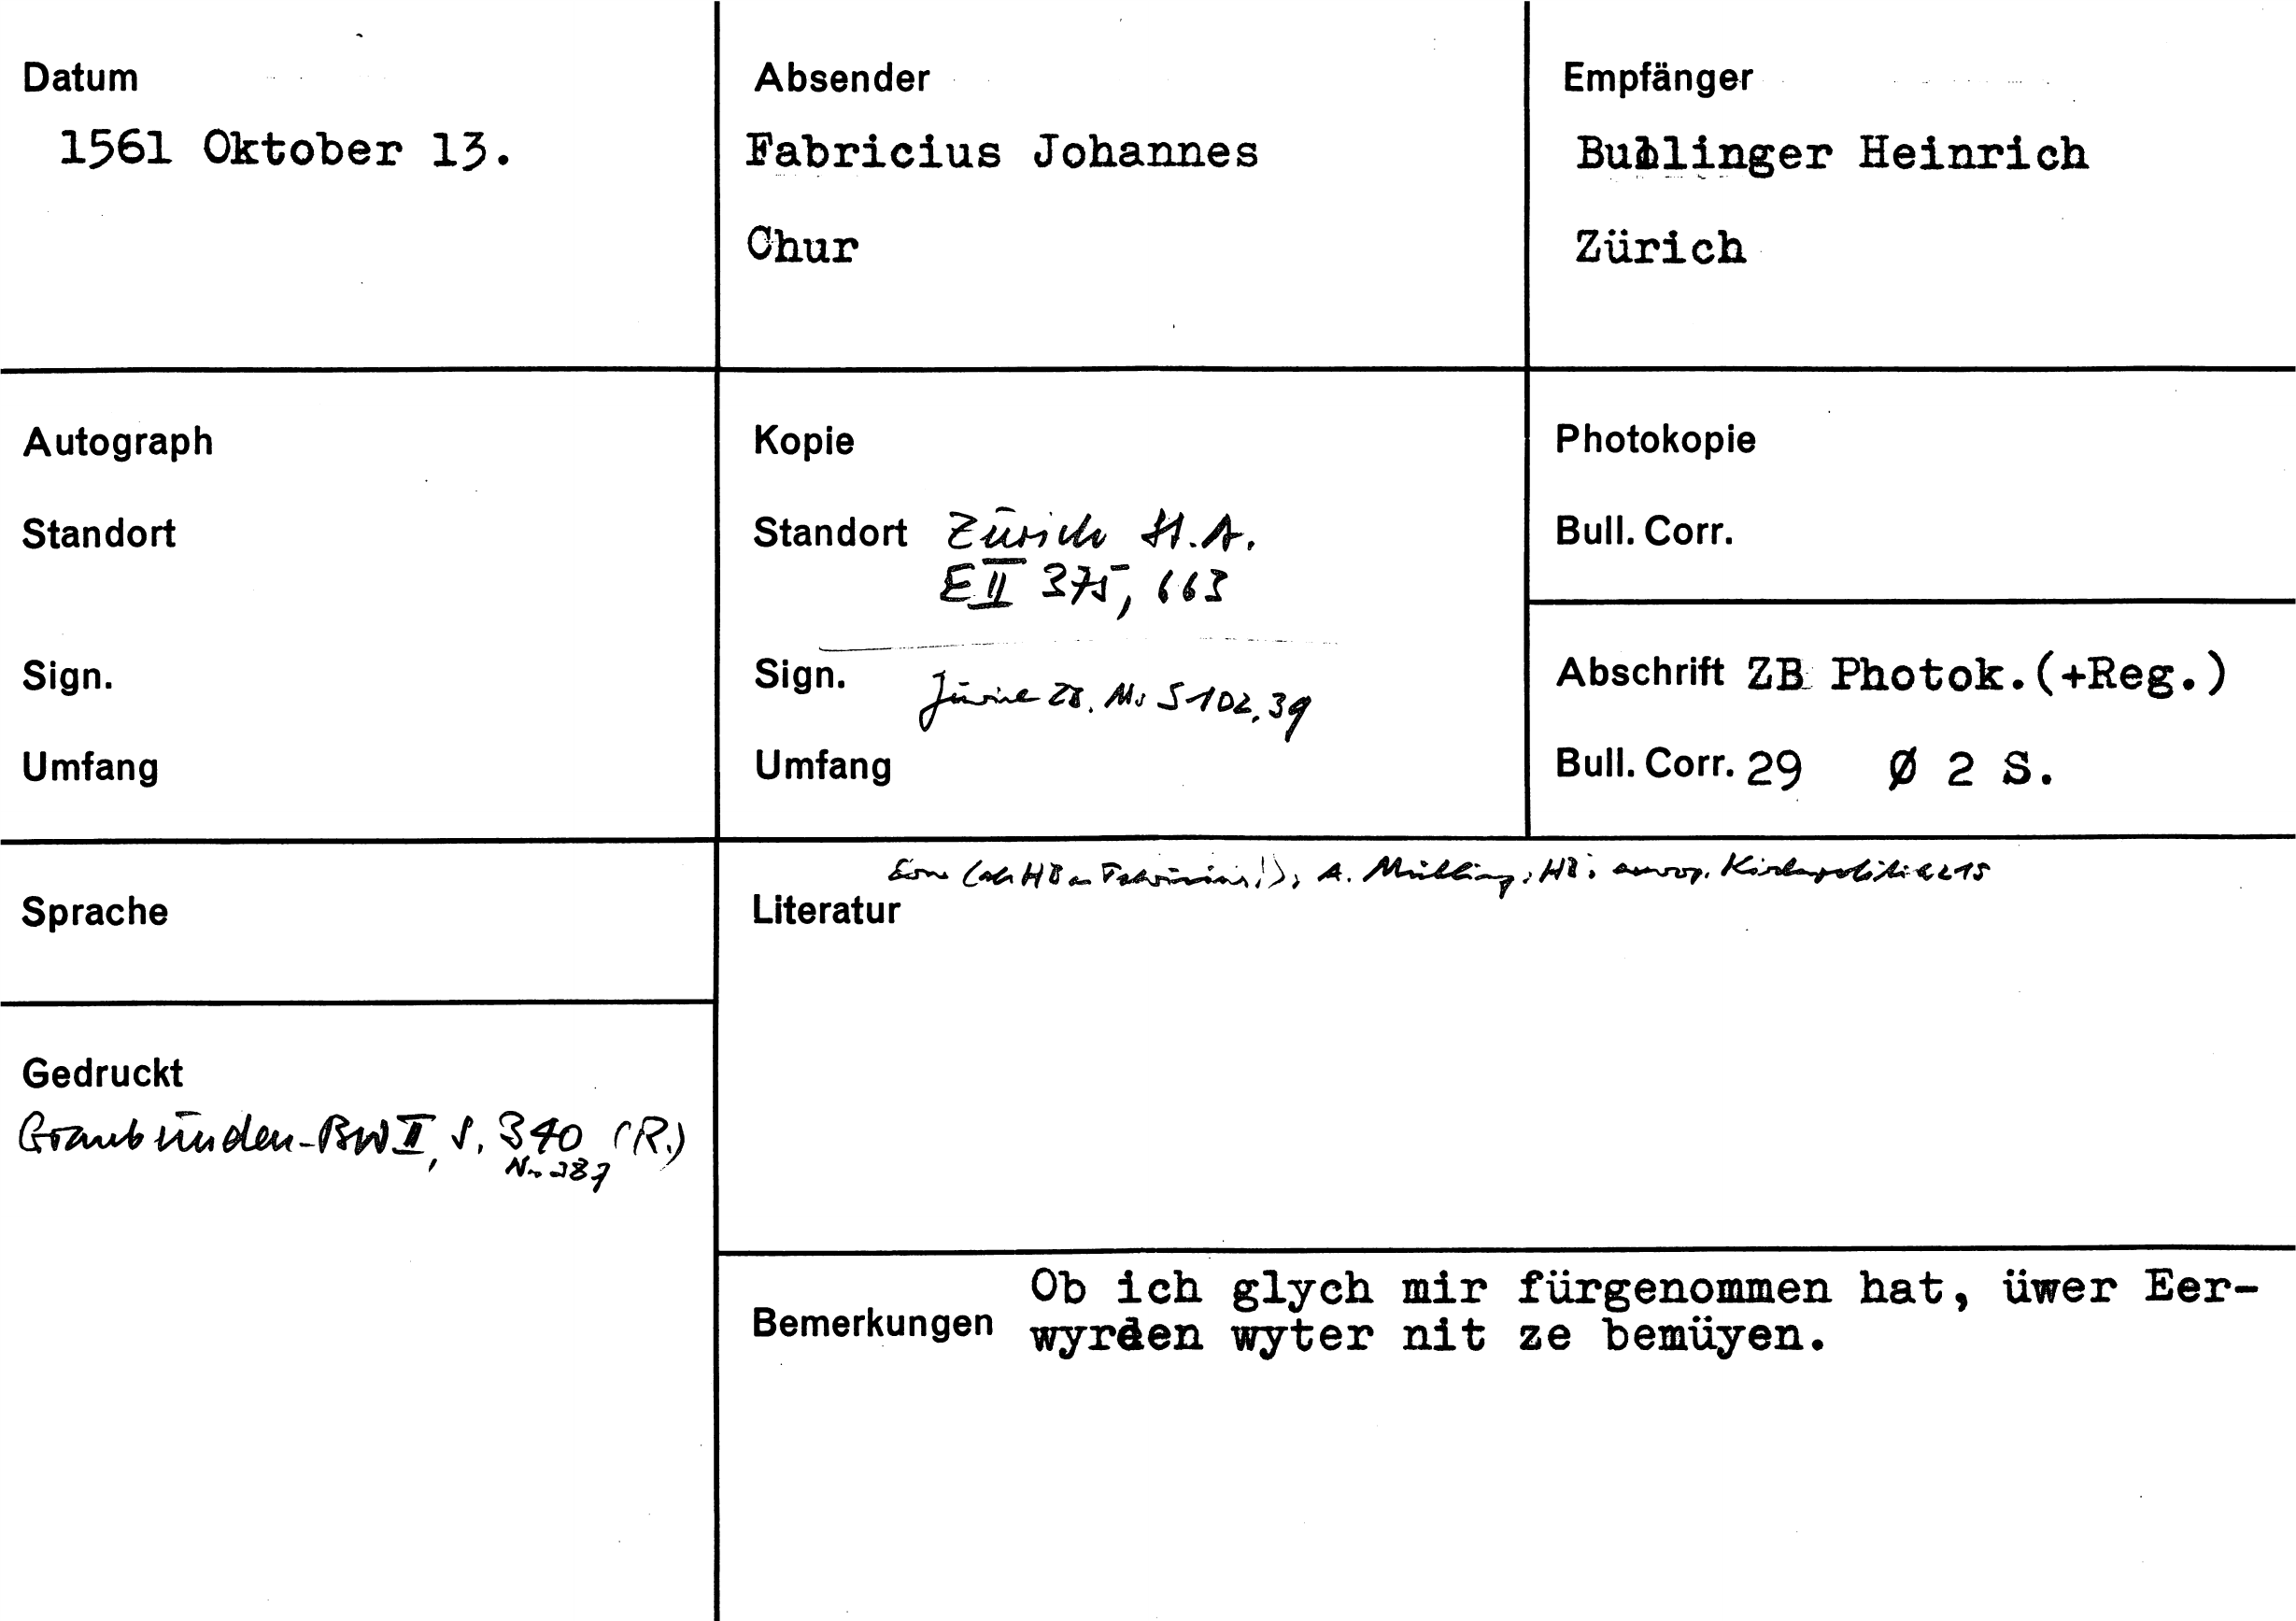 Datum
1561 Oktober 13.
Absender
Fabricius Johannes
Chur
Empfänger
Bullinger Heinrich
Zürich
Autograph
Standort
Sign.
Umfang
Kopie
Standort Zürich St.A.
E II 375, 663
Sign. Zürich ZB. Ms S 102, 39
Umfang
Photokopie
Bull. Corr.
Abschrift ZB Photok.(+Reg.)
Bull. Corr. 29 Ø 2 S.
Sprache
Gedruckt
Graubünden-BW II, S. 340 (R.)
Nr. 387
(als HB an Fabricius!), A. Mühling, HB: europ. Kirchenpolitik 215
Literatur
Bemerkungen
Ob ich glych mir fürgenommen hat, üwer Eer-
wyrden wyter nit ze bemüyen.